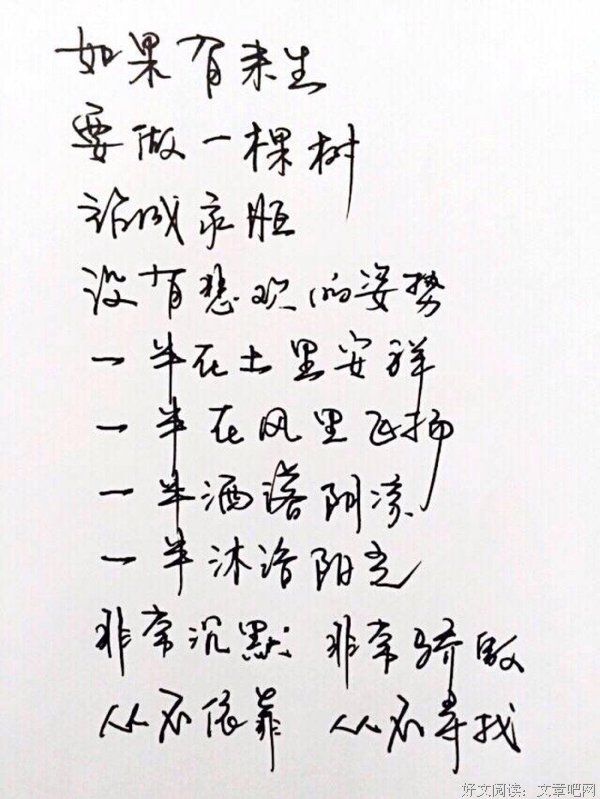 如果有来生
要做一棵树
站成永恒
没有悲欢的姿势
一半在土里安详
一半在风里飞扬
一半洒落阴凉
一半沐浴阳光
非常沉默 非常骄傲
从不依靠 从不寻找
好文阅读：文章吧网